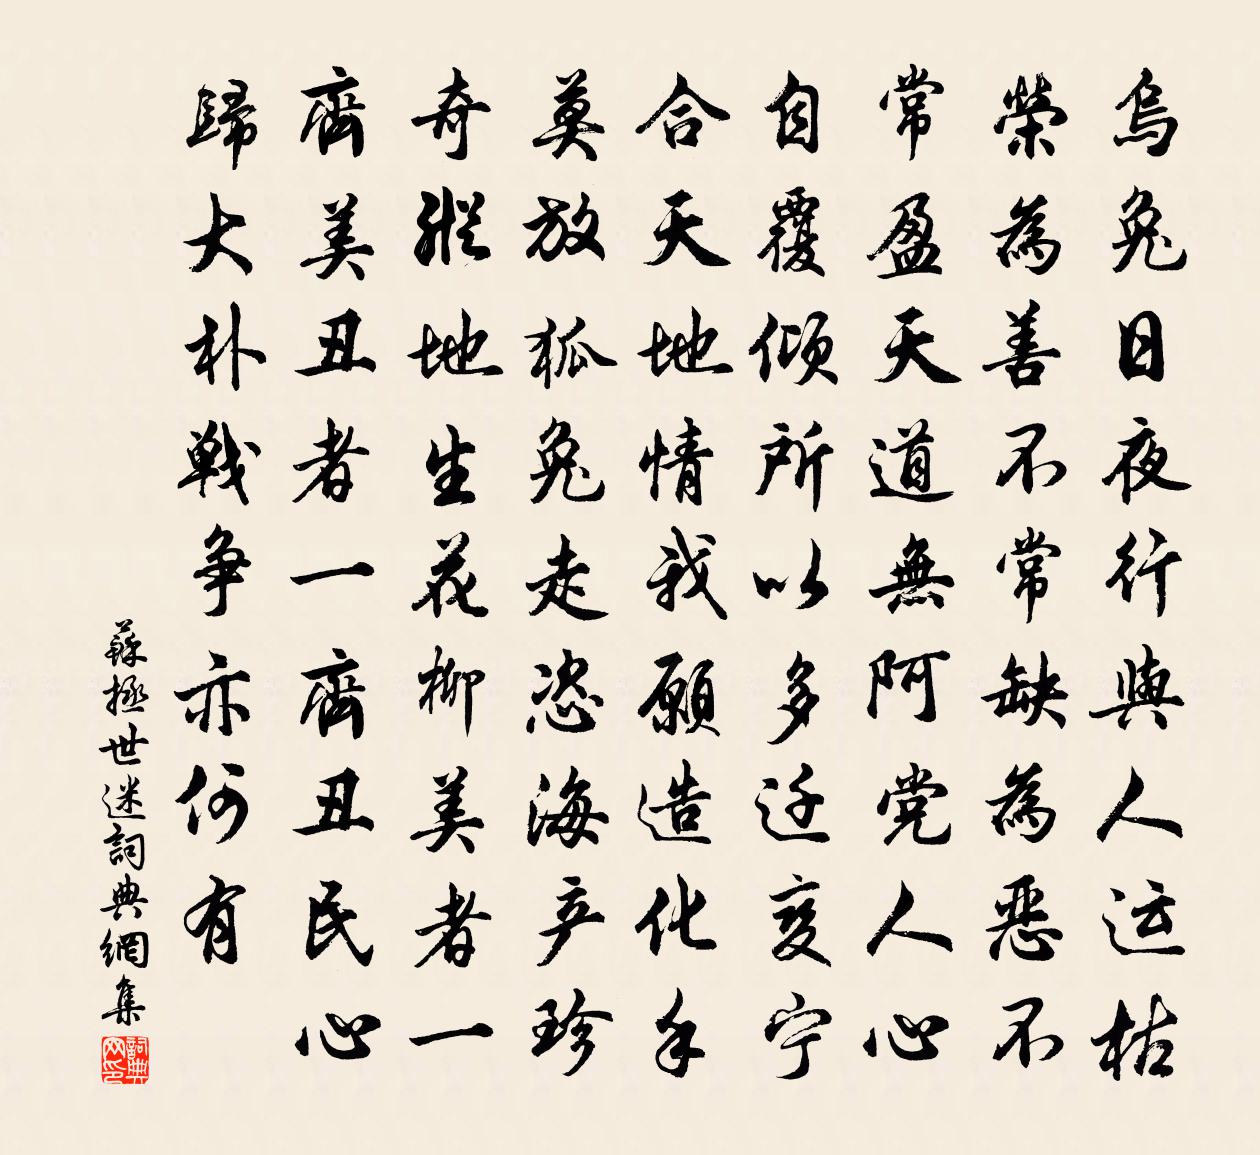 烏兔日夜行與人运枯
榮為善不常缺為惡不
常盈天道無阿党人心
自覆傾所以多迁变宁
合天地情我願造化手
莫放狐兔走恣海产珍
奇縱地生花柳美者一
齊美丑者一齊丑民心
歸大朴戰争亦何有
蘇拯世迷詞典網集
詞典网印